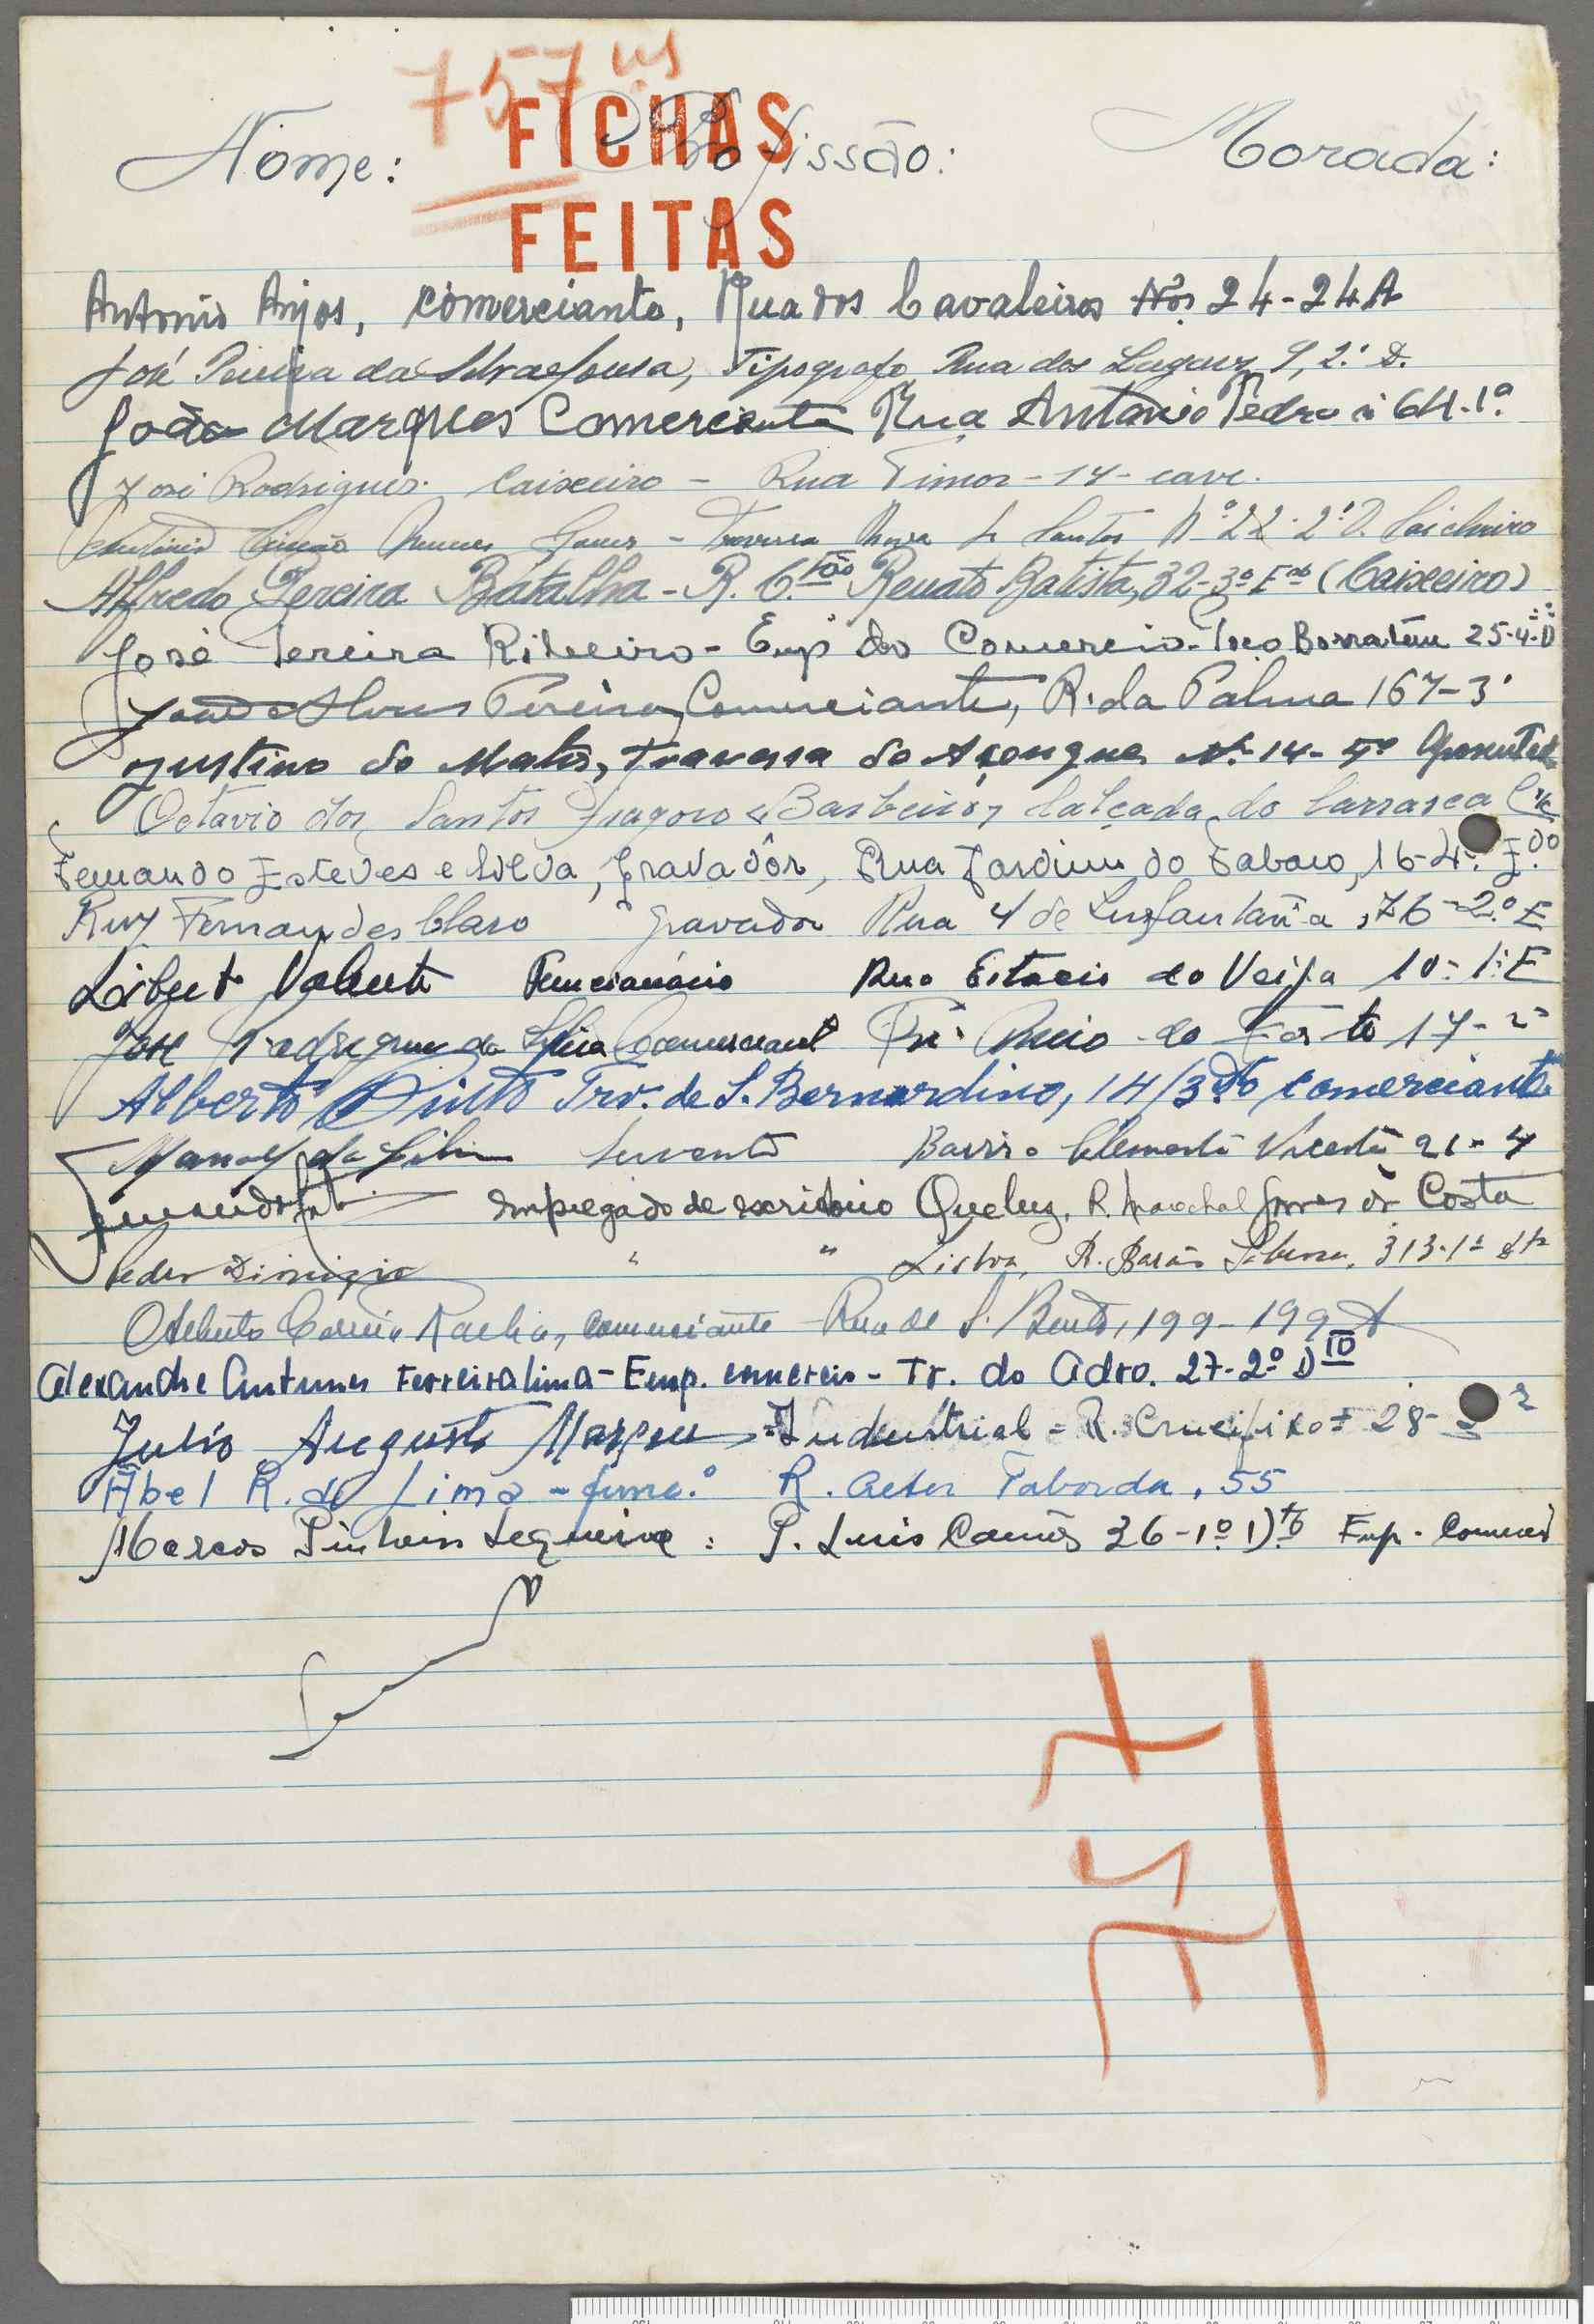 757
FICHAS
Nome: Profissão: Morada:
FEITAS
Antonio Anjos, comerciante, Rua dos Cavaleiros Nos 24-24A
José Pereira da Silva e Sousa, Tipografo Rua dos Lagares 9, 2.º D.
João Marques Comerciante Rua Antonio Pedro nº 64.1º
José Rodrigues. Caixeiro - Rua Timor - 14 - cave.
Nunes Gomes - Travessa Nova de Santos Nº 22-2º D.
Alfredo Pereira Batalha - R. C.tão Renato Batista, 32-3º Edo (Caixeiro)
José Pereira Ribeiro - Empº do Comercio - Borratem 25-4º D
Alves Pereira, Comerciante, R. da Palma 167-3º
Justino do Matos, Travessa do Açougue Nº 14-
Octavio dos Santos Fragoso Barbeiro, Calçada do Carrasca
Fernando Esteves e Silva, Gravadôr, Rua Jardim do Tabaco, 16-4º E.do
Ruy Fernandes Claro Gravador Rua 4 de Infantaria, 76-2º E
Libert Valente Funcionário Rua Estacio da Veiga 10-1º E
José Rodrigues da Silva Comerciante do Forte 17-
Alberto Pinto Trv. de S. Bernardino, 14/3º Dto Comerciante
Manoel da Silva Servente Bairro Clemente Vicente 21-4
empregado de escritorio Queluz, R. Marechal Gomes da Costa
Pedro Dionizio " " Lisboa, R. Barão Sabrosa, 313-1º dto
Adelino Correia Rocha, comerciante Rua de S. Bento, 199-199A
Alexandre Antunes Ferreira Lima - Emp. comercio - Tr. do Adro. 27-2º Dto
Julio Augusto Marques = Industrial = R. Crucifixo = 28-
Abel R. de Lima - func.º R. Actor Taborda, 55
Marcos Pinheiro Sequeira: P. Luis Camões 36-1º Dto Emp. Comercio
757